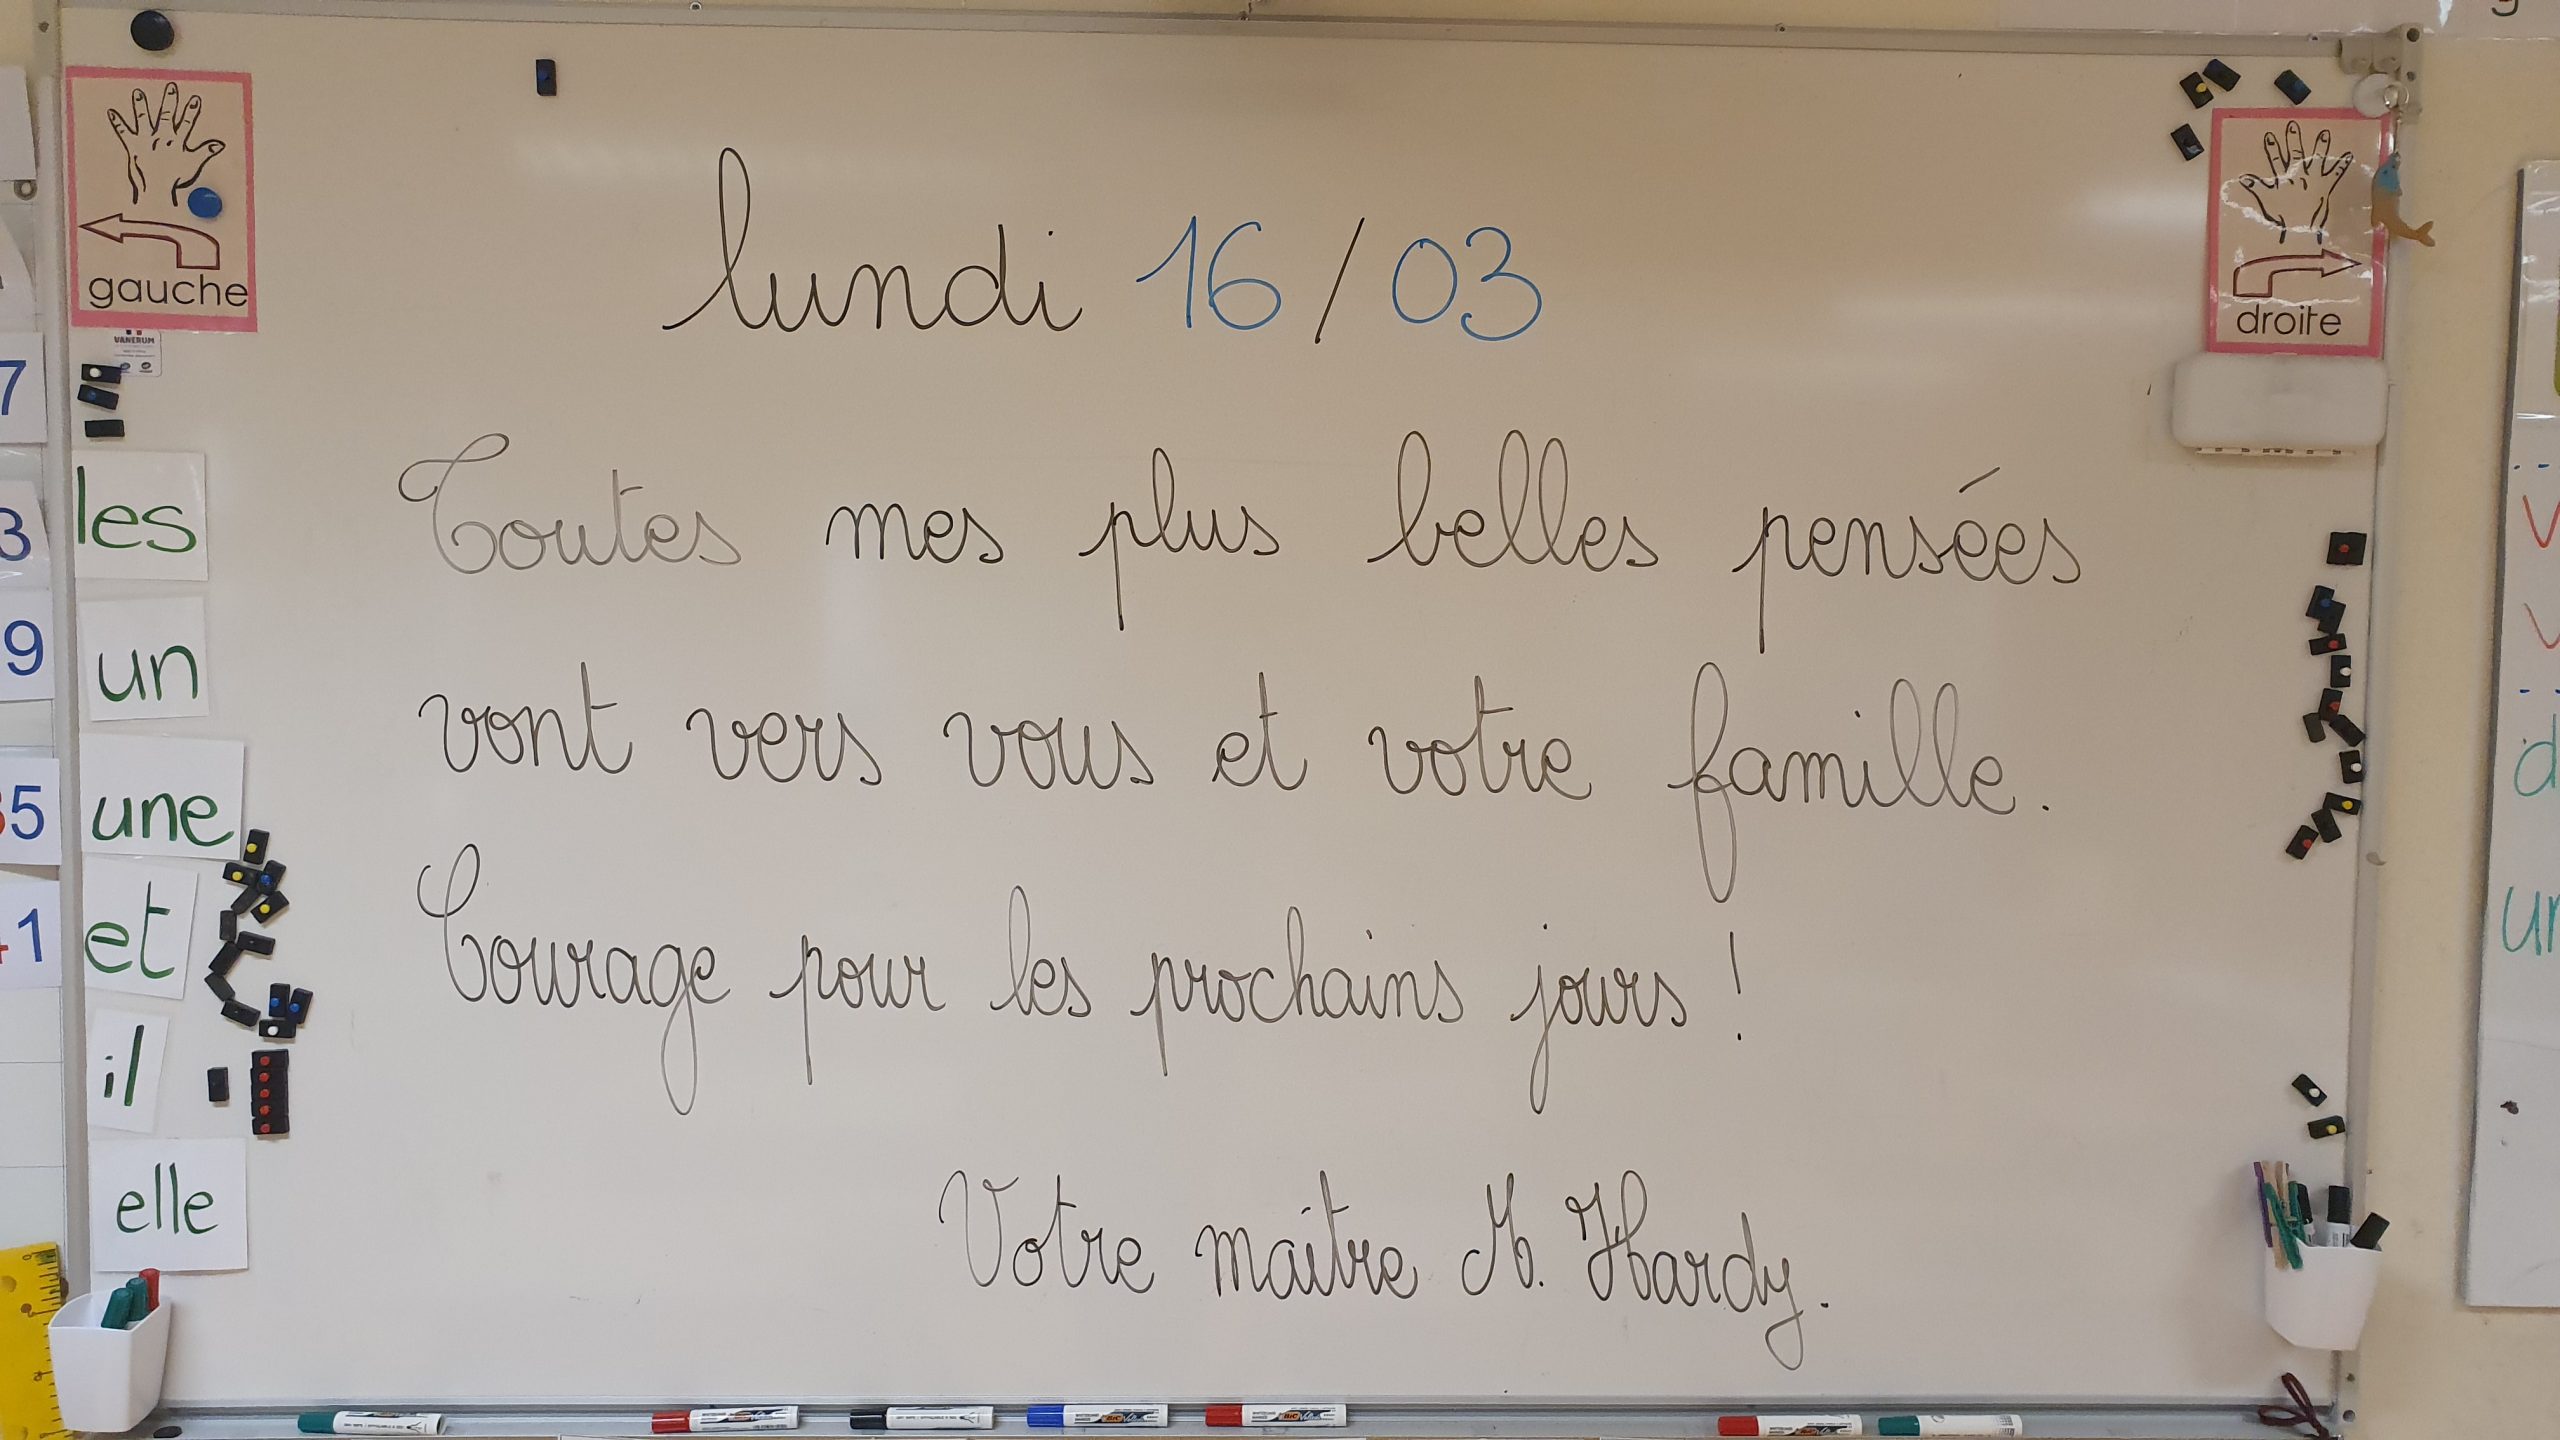 lundi 16/03
Toutes mes plus belles pensées
vont vers vous et votre famille.
Courage pour les prochains jours !
Votre maître M. Hardy.
gauche
VANERUM
les
un
une
et
il
elle
droite
7
3
9
35
41